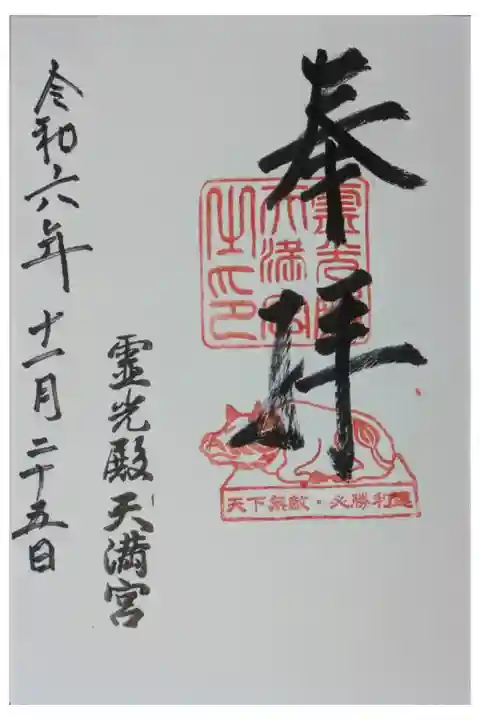 奉拝
霊光殿
天満宮
之印
天下無敵・必勝利運
霊光殿天満宮
令和六年十一月二十五日